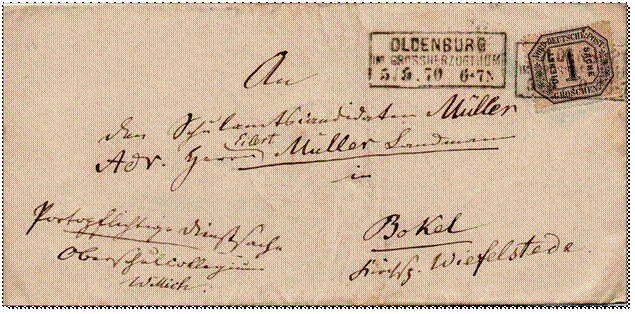 OLDENBURG
IM GROSSHERZOGTHUM
5/5.70 6-7N
NORDD. DEUTSCHE. POST
DIENST SACHE
1
GROSCHEN
An
den Schulamtscandidaten Müller
Eilert
Adr. Herrn Müller Landmann
in
Portopflichtige Dienstsache
Oberschulcollegium
Willich.
Bokel
Kirchsp. Wiefelstede.